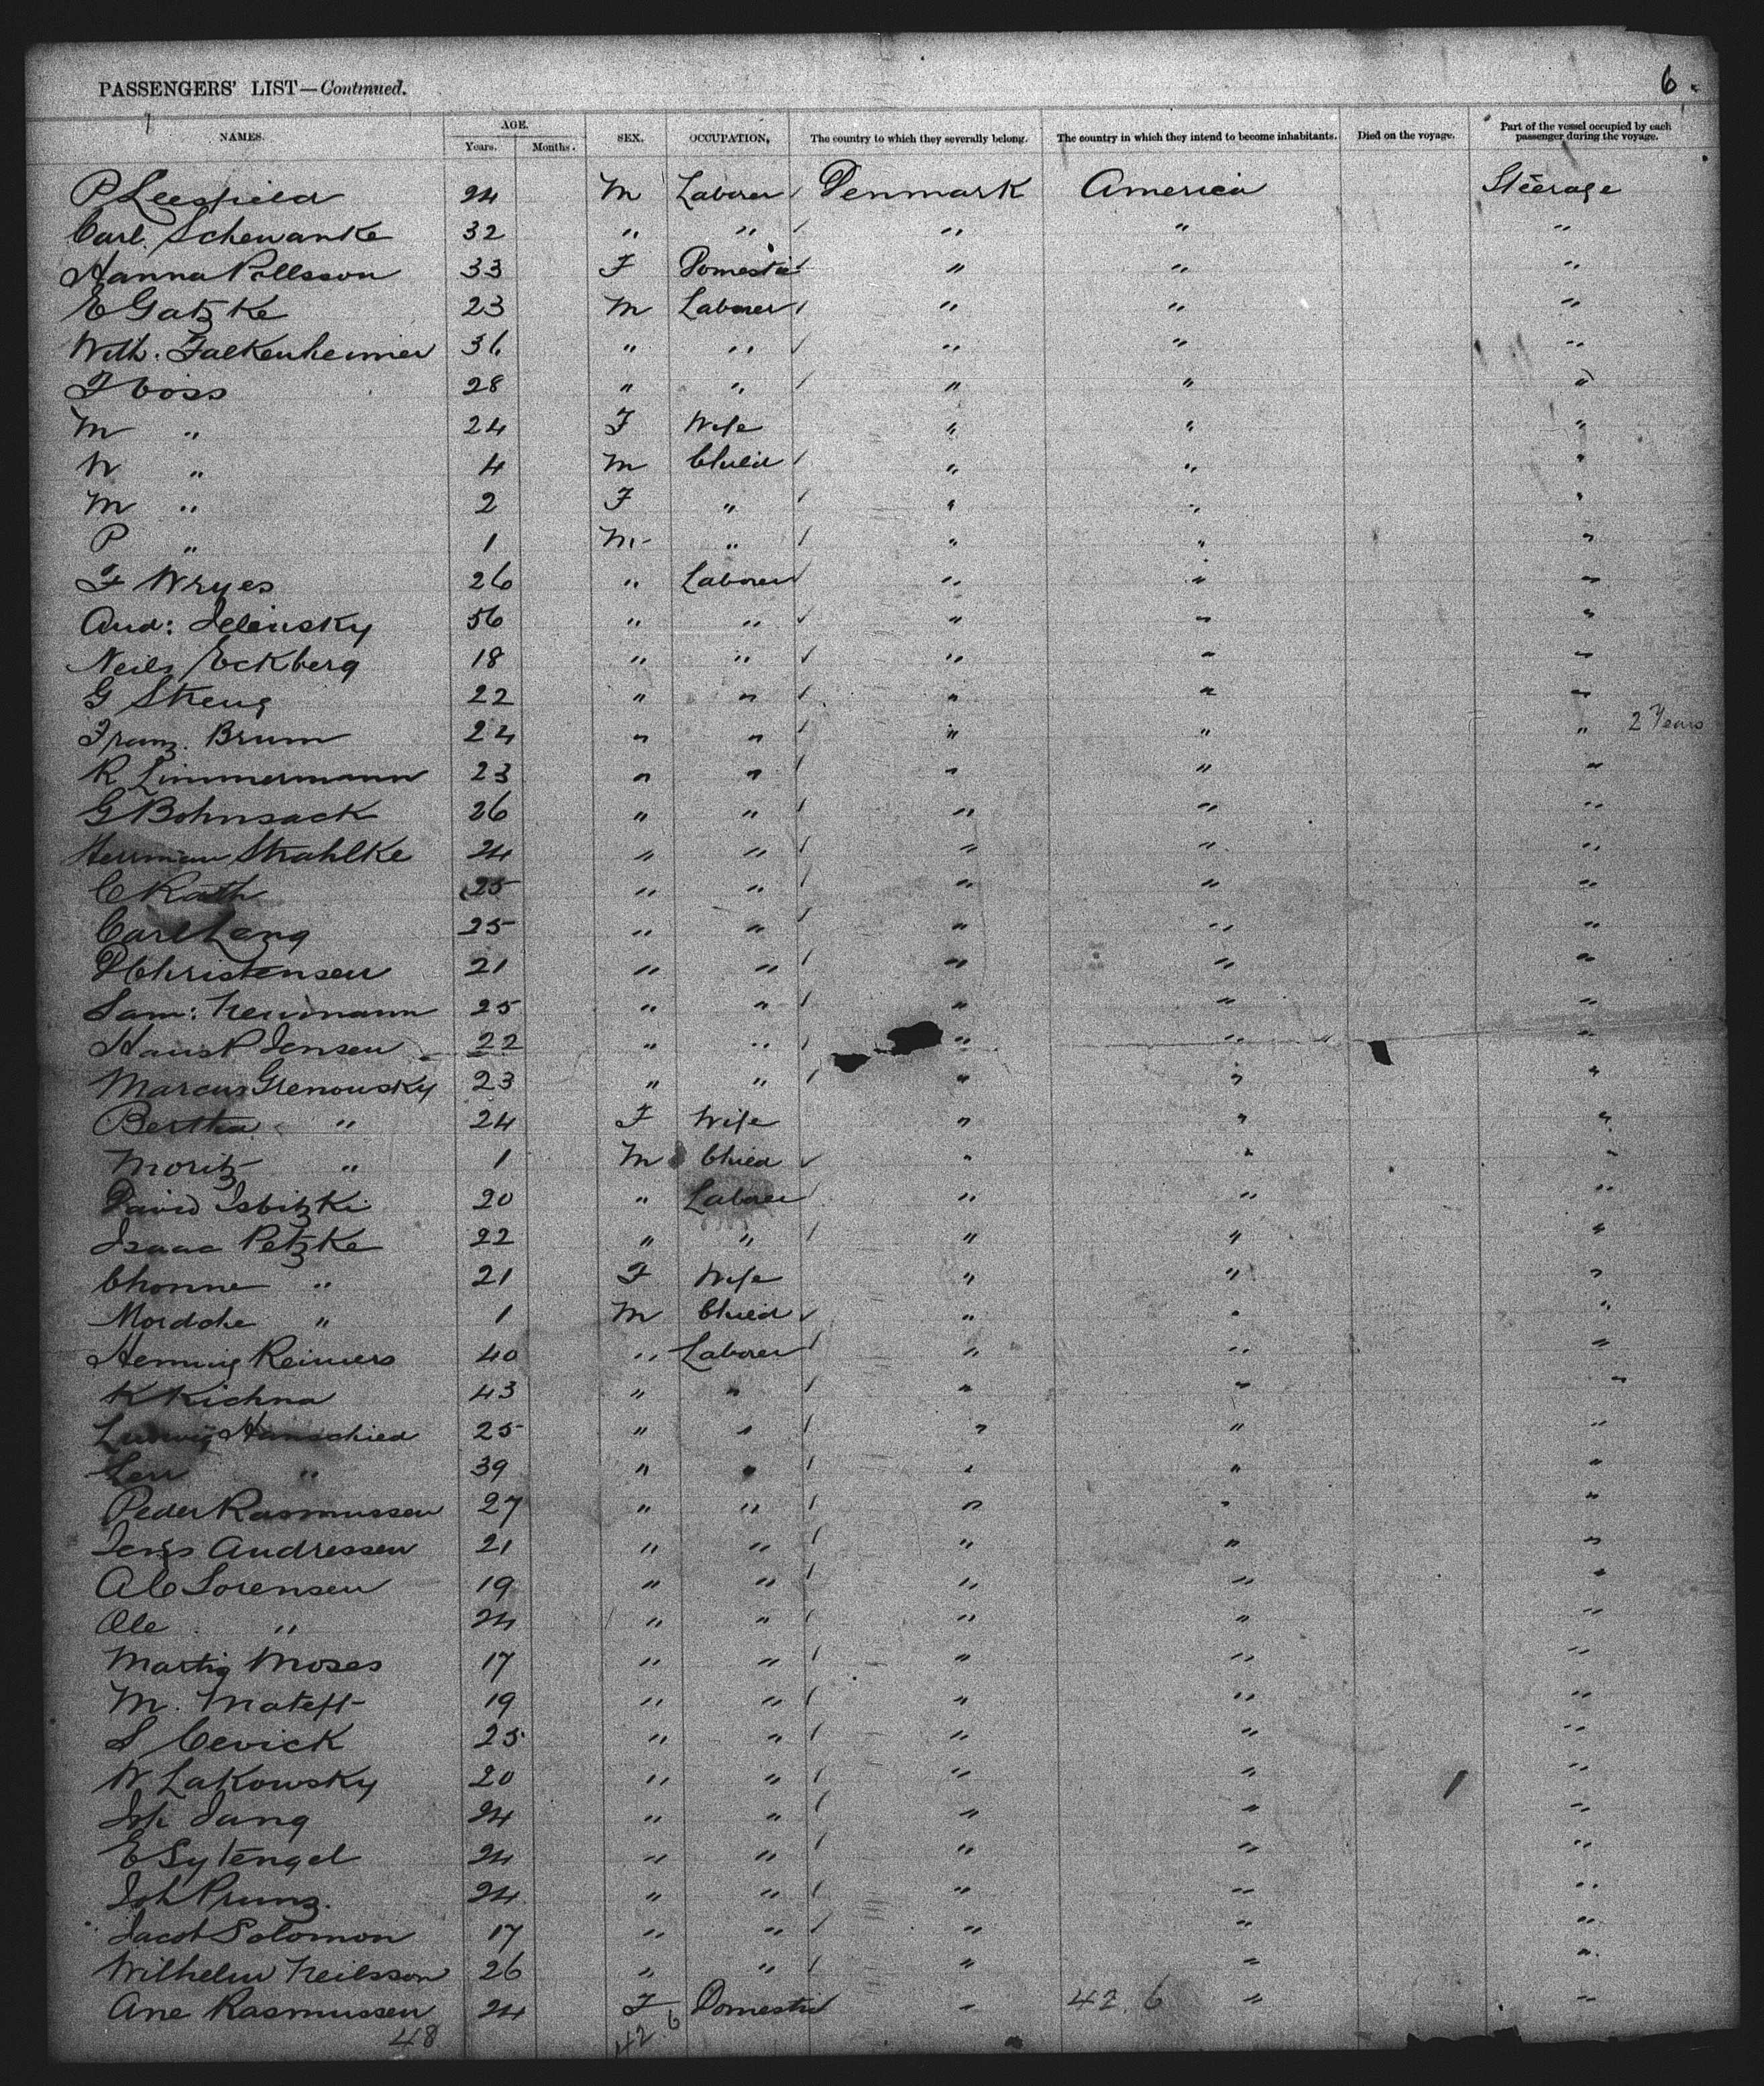 PASSENGERS' LIST—Continued. 6.
NAMES. AGE. Years. Months. SEX. OCCUPATION, The country to which they severally belong. The country in which they intend to become inhabitants. Died on the voyage. Part of the vessel occupied by each passenger during the voyage.
P Leesfield 24 M Laborer Denmark America Steerage
Carl Schewanke 32 " " " " "
Hanna Pollsson 33 F Domestic " " "
E Gatzke 23 M Laborer " " "
Wilh. Falkenheimer 36 " " " " "
F Voss 28 " " " " "
M " 24 F Wife " " "
W " 4 M Child " " "
M " 2 F " " " "
P " 1 M " " " "
F Wryes 26 " Laborer " " "
And: Jelensky 56 " " " " "
Neils Eckberg 18 " " " " "
G Skeng 22 " " " " "
Franz. Brum 24 " " " " " 2 Years
R Zimmermann 23 " " " " "
G Bohnsack 26 " " " " "
Herrman Strahlke 24 " " " " "
C Rath 25 " " " " "
Carl Lang 25 " " " " "
P Christensen 21 " " " " "
Sam: Neumann 25 " " " " "
Hans P Jensen 22 " " " " "
Marcus Grenowsky 23 " " " " "
Bertha " 24 F Wife " " "
Moritz " 1 M Child " " "
David Isbitzki 20 " Laborer " " "
Isaac Petzke 22 " " " " "
Chonne " 21 F Wife " " "
Mordche " 1 M Child " " "
Henning Reimers 40 " Laborer " " "
K Kichna 43 " " " " "
Ludwig Hamschied 25 " " " " "
" 39 " " " " "
Peder Rasmussen 27 " " " " "
Jens Andressen 21 " " " " "
A C Sorensen 19 " " " " "
Ole " 24 " " " " "
Martin Moses 17 " " " " "
M. 19 " " " " "
S Cevick 25 " " " " "
W Lakowsky 20 " " " " "
Joh Jang 24 " " " " "
E Sytengel 24 " " " " "
Joh Prunz. 24 " " " " "
Jacob Solomon 17 " " " " "
Wilhelm Neilsson 26 " " " " "
Ane Rasmussen 24 F Domestic " 42. 6 " "
48 42 6